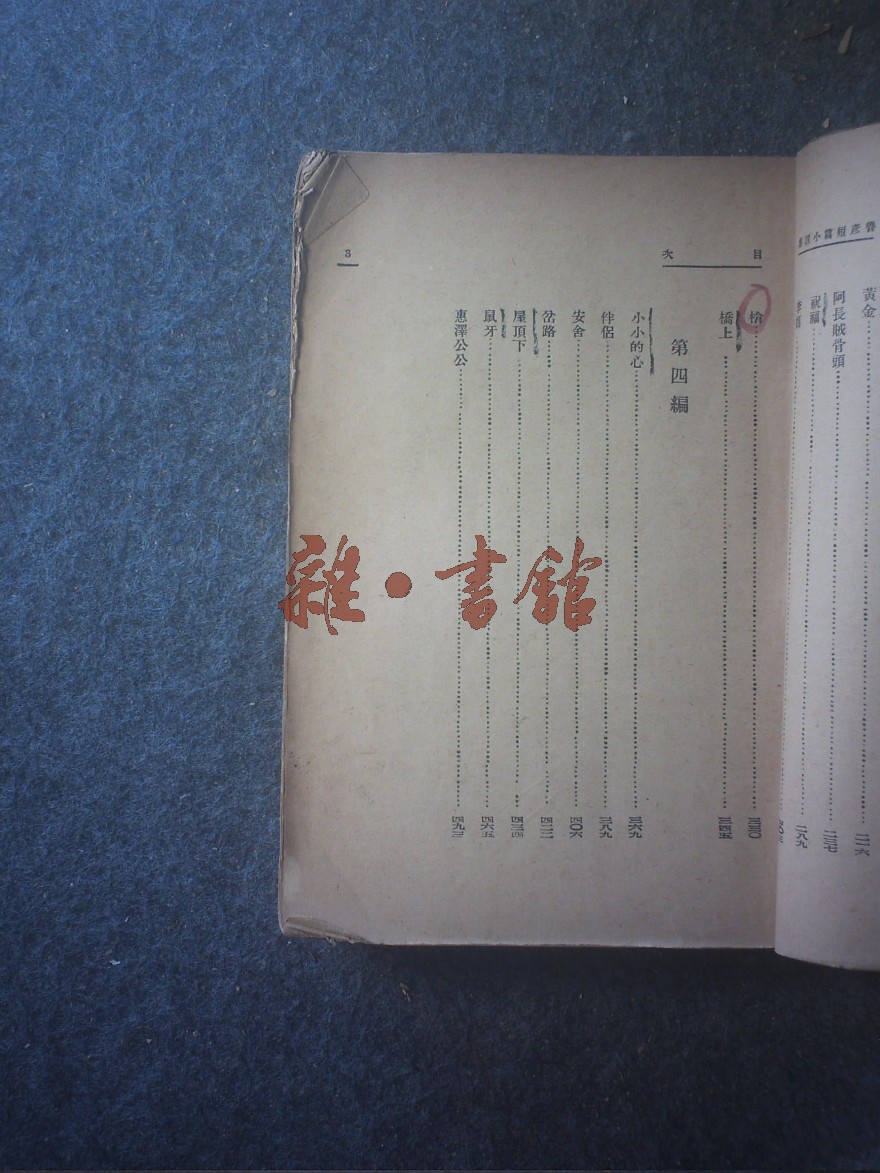 魯彥短篇小說集
黃金……二一六
阿長賊骨頭……二三七
祝福……二八九
目次
槍……三三〇
橋上……三四五
第四編
小小的心……三六九
伴侶……三八九
安舍……四〇六
岔路……四二二
屋頂下……四三四
鼠牙……四六五
惠澤公公……四九三
3
雜·書館